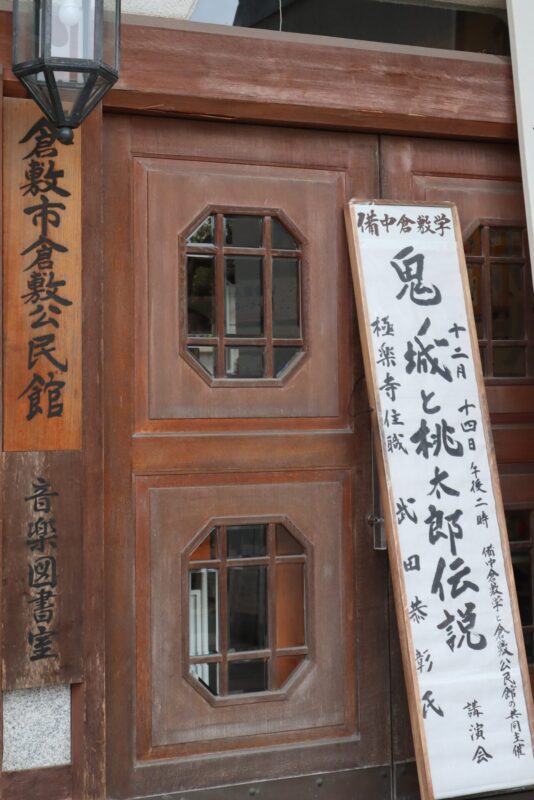 倉敷市倉敷公民館
音楽図書室
備中倉敷学
十二月十四日午後二時
備中倉敷学と倉敷公民館の共同主催
講演会
鬼ノ城と桃太郎伝説
極楽寺住職 武田恭彰氏